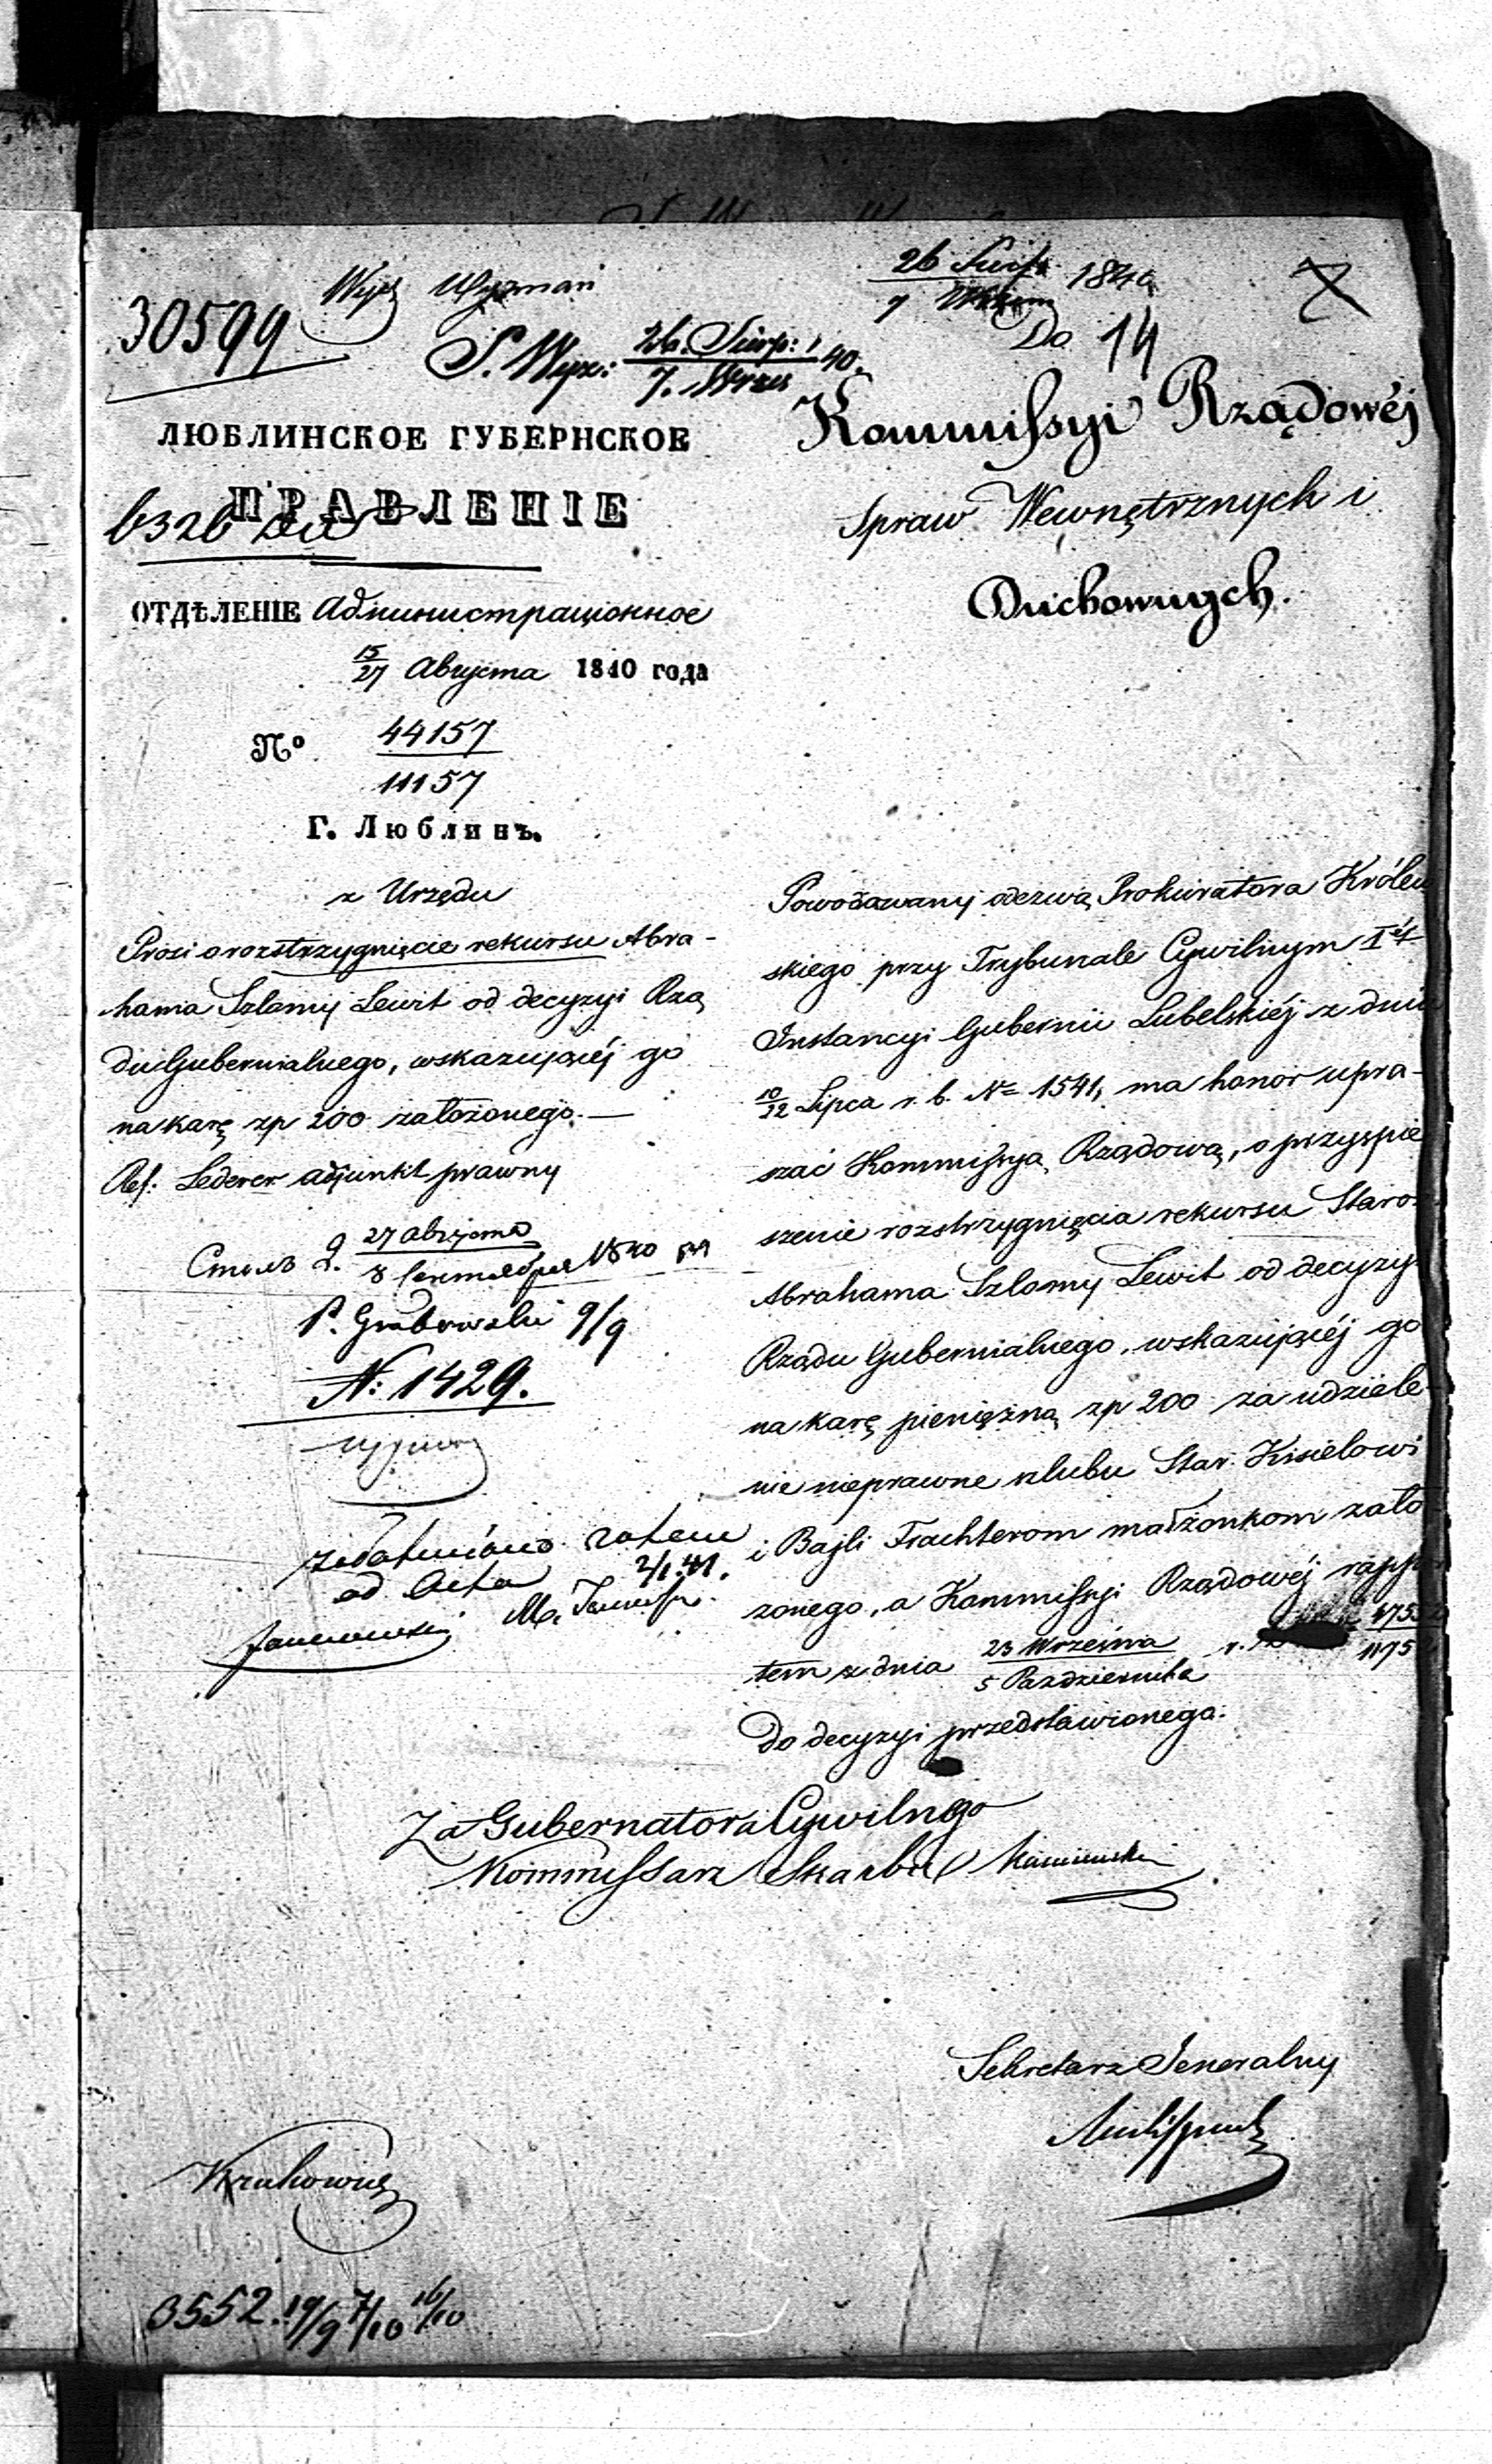 30599
Wyznań
26 Sierp. 1840
7
S. Wyzn: 26. Sierp: 40.
7. Wrześ
Do 14
ЛЮБЛИНСКОЕ ГУБЕРНСКОЕ
ПРАВЛЕНІЕ
6326
ОТДѢЛЕНІЕ Администраціонное
15/27 Августа 1840 года
№ 44157
11157
Г. Люблинъ.
Kommissyi Rządowéj
Spraw Wewnętrznych i
Duchownych.
z Urzędu
Prosi o rozstrzygnięcie rekursu Abra-
hama Szlamy Lewit od decyzyi Rzą
du Gubernialnego, wskazującéj go
na karę zp 200 założonego. —
Ref: Lederer adjunkt prawny
Столъ 2. 27 августа
8 сентября 1840
P. Grabowski 9/9
N: 1429.
zatem
ad Acta 2/1 41.
Janiszewski
Powodowany odezwą Prokuratora Królew
skiego przy Trybunale Cywilnym Iéj
Instancyi Gubernii Lubelskiéj z dnia
10/22 Lipca r. b. N= 1541, ma honor upra-
szać Kommissyą Rządową, o przyspie
szenie rozstrzygnięcia rekursu Staroz
Abrahama Szlomy Lewit od decyzyi
Rządu Gubernialnego, wskazującéj go
na karę pieniężną zp 200 za udziele-
nie nieprawne szlubu Star. Kisielowi
i Bajli Trachterom małżonkom zało
żonego, a Kommissyi Rządowéj rappor
tem z dnia 23 Września r.
5 Października
do decyzyi przedstawionego.
Za Gubernatora Cywilnego
Kommissarz Skarbu
Sekretarz Jeneralny
3552. 19/9 7/10 16/10